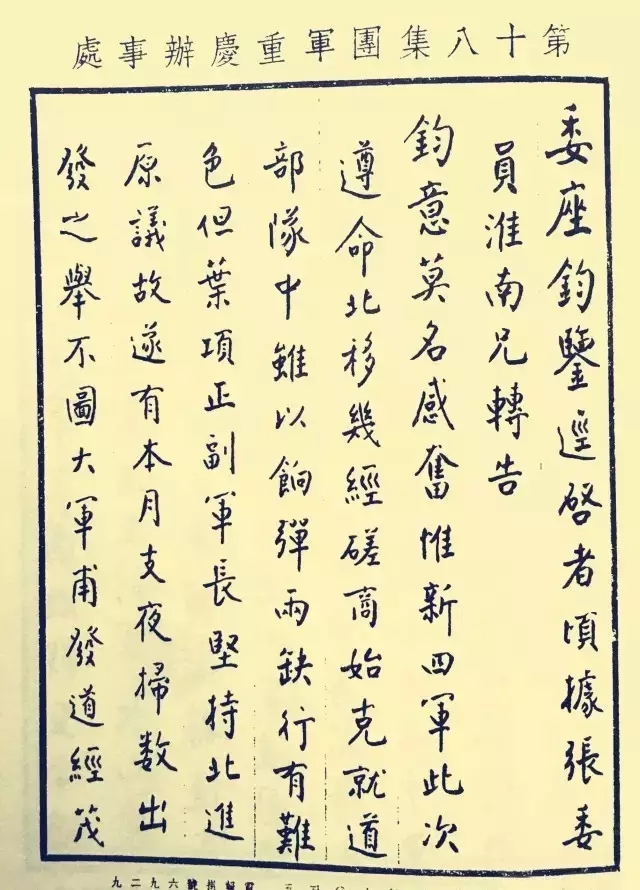 處事辦慶重軍團集八十第
委座鈞鑒逕啓者頃據張委
員淮南兄轉告
鈞意莫名感奮惟新四軍此次
遵命北移幾經磋商始克就道
部隊中雖以餉彈兩缺行有難
色但葉項正副軍長堅持北進
原議故遂有本月支夜掃数出
發之舉不圖大軍甫發道經茂
九二九六號掛報電